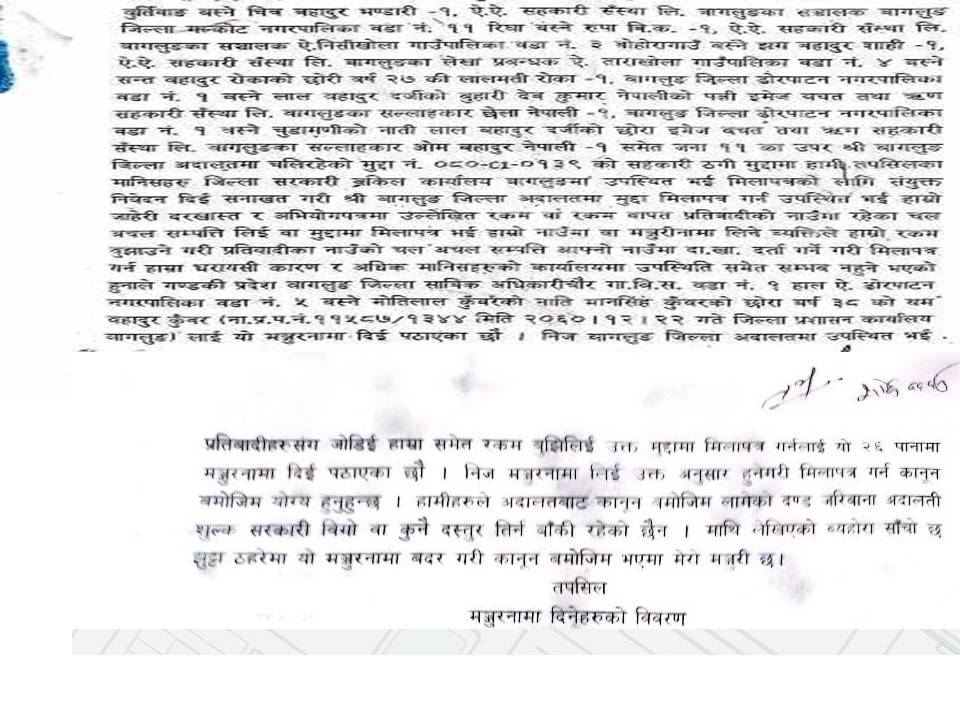 बुर्तिवाङ बस्ने चित्र बहादुर भण्डारी -१, ऐ.ऐ. सहकारी सँस्था लि. बागलुङका सञ्चालक बागलुङ
जिल्ला गल्कोट नगरपालिका वडा नं. ११ रिघा बस्ने रुपा बि.क. -१, ऐ.ऐ. सहकारी सँस्था लि.
बागलुङका सञ्चालक ऐ.निसीखोला गाउँपालिका वडा नं. ३ बोहोरागाउँ बस्ने झग बहादुर शाही -१,
ऐ.ऐ. सहकारी सँस्था लि. बागलुङका लेखा प्रबन्धक ऐ. ताराखोला गाउँपालिका वडा नं. ४ बस्ने
सन्त बहादुर रोकाको छोरी बर्ष २७ की लालमती रोका -१, बागलुङ जिल्ला ढोरपाटन नगरपालिका
वडा नं. १ बस्ने लाल बहादुर दर्जीको बुहारी देव कुमार नेपालीको पत्नी इमेज बचत तथा ऋण
सहकारी सँस्था लि. बागलुङका सल्लाहकार छेला नेपाली -१, बागलुङ जिल्ला ढोरपाटन नगरपालिका
वडा नं. १ बस्ने चुडामणीको नाती लाल बहादुर दर्जीको छोरा इमेज बचत तथा ऋण सहकारी
सँस्था लि. बागलुङका सल्लाहकार ओम बहादुर नेपाली -१ समेत जना ११ का उपर श्री बागलुङ
जिल्ला अदालतमा चलिरहेको मुद्दा नं. ०८०-C1-०१३९ को सहकारी ठगी मुद्दामा हामी तपसिलका
मानिसहरु जिल्ला सरकारी वकिल कार्यालय बागलुङमा उपस्थित भई मिलापत्रको लागि संयुक्त
निवेदन दिई सनाखत गरी श्री बागलुङ जिल्ला अदालतमा मुद्दा मिलापत्र गर्न उपस्थित भई हाम्रो
जाहेरी दरखास्त र अभियोगपत्रमा उल्लेखित रकम वा रकम बापत प्रतिवादीको नाउँमा रहेका चल
अचल सम्पत्ति लिई वा मुद्दामा मिलापत्र भई हाम्रो नाउँमा वा मञ्जुरीनामा लिने व्यक्तिले हाम्रो रकम
बुझाउने गरी प्रतिवादीका नाउँको चल अचल सम्पत्ति आफ्नो नाउँमा दा.खा. दर्ता गर्ने गरी मिलापत्र
गर्न हाम्रा घरायसी कारण र अधिक मानिसहरुको कार्यालयमा उपस्थिति समेत सम्भव नहुने भएको
हुनाले गण्डकी प्रदेश बागलुङ जिल्ला साविक अधिकारीचौर गा.बि.स. वडा नं. १ हाल ऐ. ढोरपाटन
नगरपालिका वडा नं. ५ बस्ने मोतिलाल कुँवरको नाति मानसिंह कुँवरको छोरा बर्ष ३८ को यम
बहादुर कुँवर (ना.प्र.प.नं.११५८७/१३४४ मिति २०६०।१२।२२ गते जिल्ला प्रशासन कार्यालय
बागलुङ) लाई यो मञ्जुरनामा दिई पठाएका छौं । निज बागलुङ जिल्ला अदालतमा उपस्थित भई .
प्रतिबादीहरुसंग जोडिई हाम्रा समेत रकम बुझिलिई उक्त मुद्दामा मिलापत्र गर्नलाई यो २६ पानामा
मञ्जुरनामा दिई पठाएका छौं । निज मञ्जुरनामा लिई उक्त अनुसार हुनेगरी मिलापत्र गर्न कानून
बमोजिम योग्य हुनुहुन्छ । हामीहरुले अदालतबाट कानून बमोजिम लागेको दण्ड जरिवाना अदालती
शुल्क सरकारी बिगो वा कुनै दस्तुर तिर्न बाँकी रहेको छैन । माथि लेखिएको ब्यहोरा साँचो छ
झुट्ठा ठहरेमा यो मञ्जुरनामा बदर गरी कानून बमोजिम भएमा मेरो मञ्जुरी छ।
तपसिल
मञ्जुरनामा दिनेहरुको विवरण